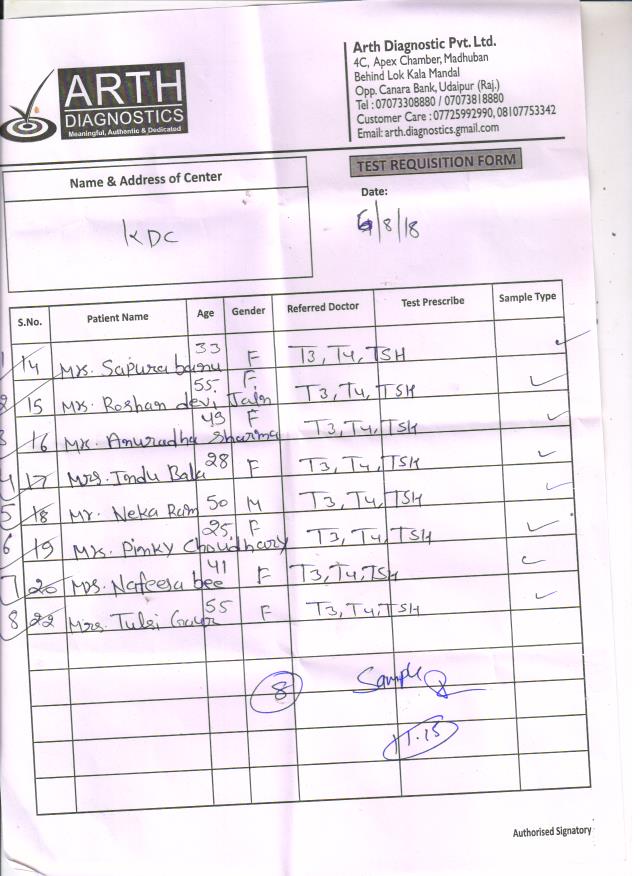 ARTH
DIAGNOSTICS
Meaningful, Authentic & Dedicated
Arth Diagnostic Pvt. Ltd.
4C, Apex Chamber, Madhuban
Behind Lok Kala Mandal
Opp. Canara Bank, Udaipur (Raj.)
Tel : 07073308880 / 07073818880
Customer Care : 07725992990, 08107753342
Email: arth.diagnostics.gmail.com
Name & Address of Center
KDC
TEST REQUISITION FORM
Date:
6/8/18
S.No. Patient Name Age Gender Referred Doctor Test Prescribe Sample Type
1 14 Mrs. Sapura banu 33 F T3, T4, TSH
2 15 Mrs. Roshan devi Jain 55 F T3, T4, TSH
3 16 Mrs. Anuradha Sharma 49 F T3, T4, TSH
4 17 Mrs. Indu Bala 28 F T3, T4, TSH
5 18 Mr. Neka Ram 50 M T3, T4, TSH
6 19 Mrs. Pinky Choudhary 25 F T3, T4, TSH
7 20 Mrs. Nafeesa bee 41 F T3, T4, TSH
8 22 Mrs. Tulsi Gaur 55 F T3, T4, TSH
8 Sample
Authorised Signatory